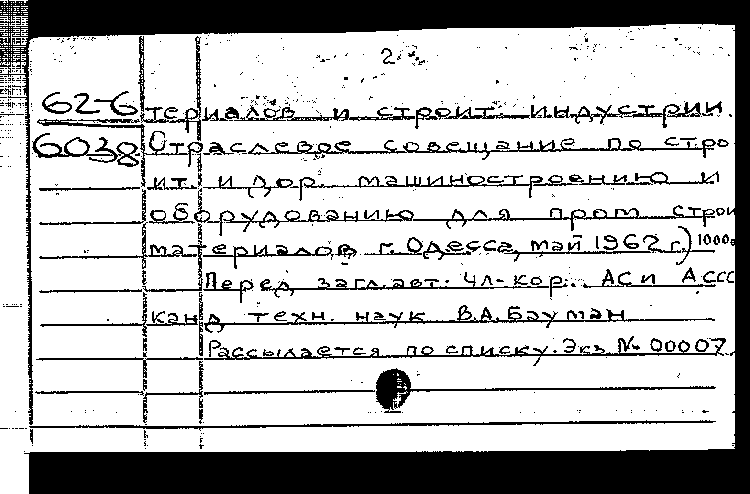 2
62-6 териалов и строит. индустрии.
6038 Отраслевое совещание по стро
ит. и дор. машиностроению и
оборудованию для пром строи
материалов г. Одесса, май 1962 г.) 1000э
Перед загл.авт: чл-кор. АСи АССС
канд техн. наук В.А.Бауман
Рассылается по списку. Экз № 00007